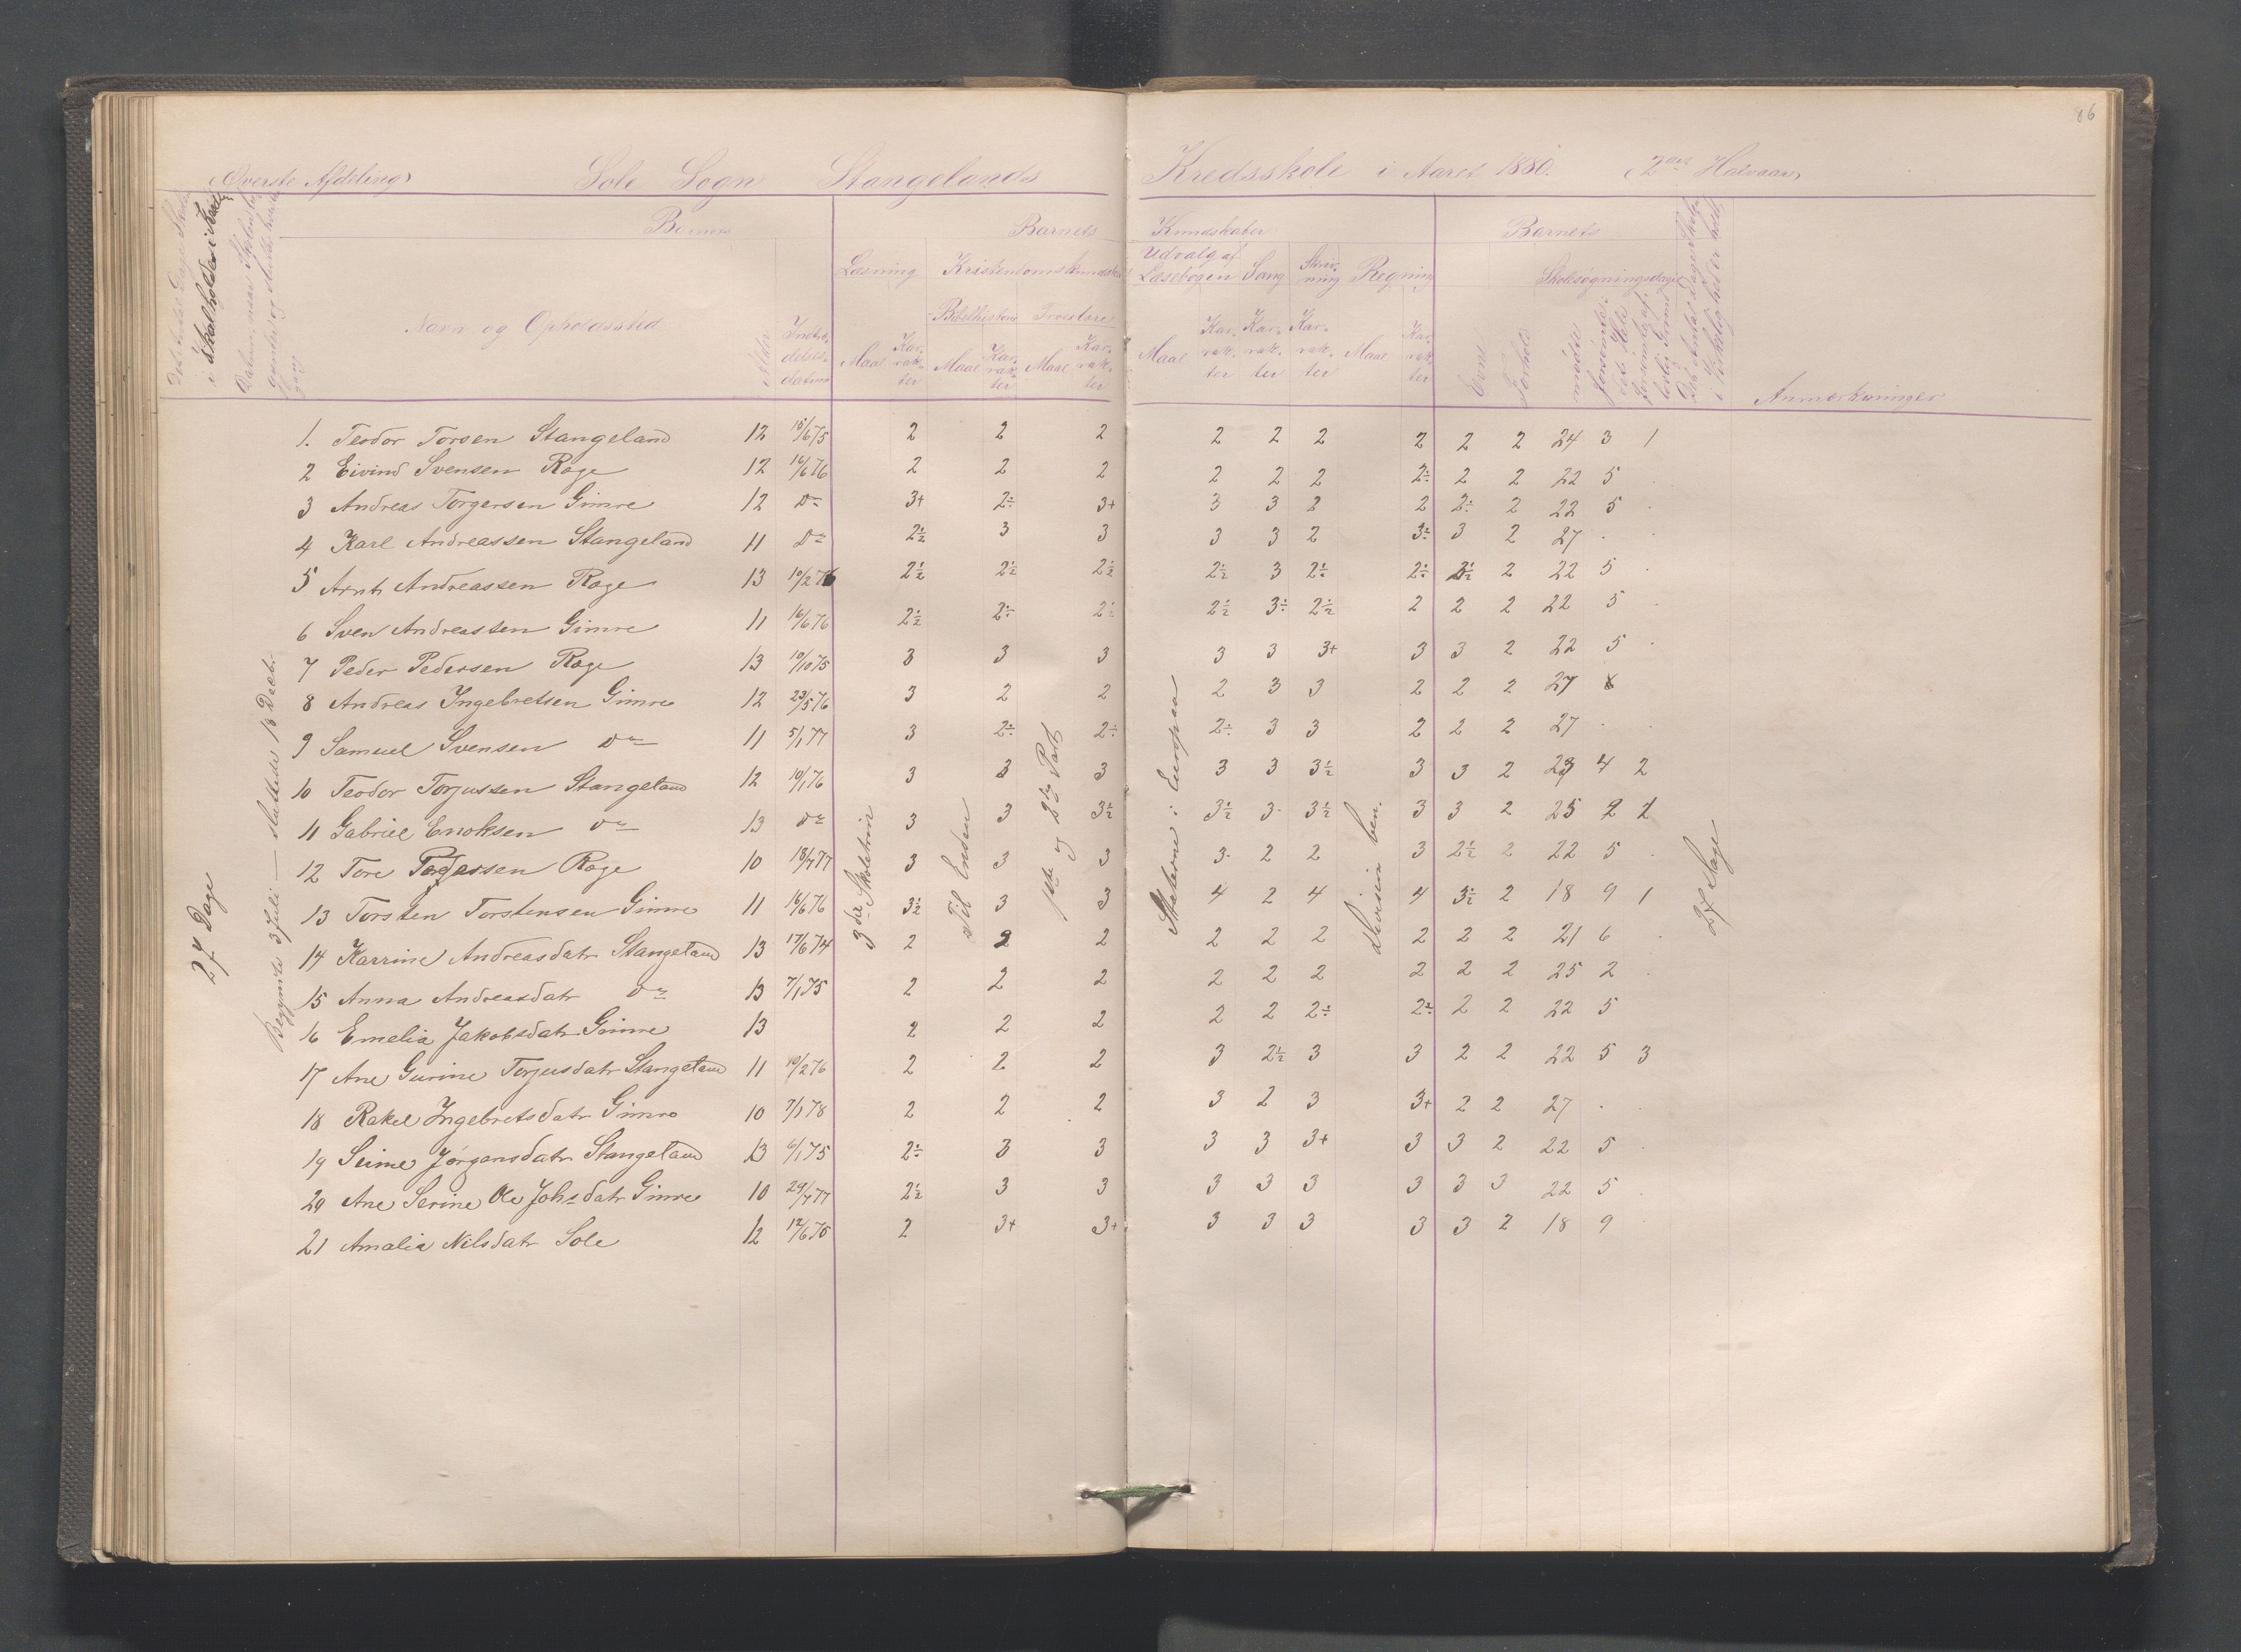 86
(Øverste Afdeling) Sole Sogn Stangelands Kredsskole i Aaret 1880. (2det Halvaar)
Barnets Barnets Kundskaber Barnets
Læsning Kristendomskundskab Udvalg af Læsebogen Sang Skrivning Regning Skolesøgningsdage
Bibelhistorie Troeslære
Navn og Opholdssted Alder Indtrædelsesdatum Maal Karakter Maal Karakter Maal Karakter Maal Karakter Karakter Karakter Maal Karakter Evne Forhold mødte Anmærkninger
1. Teodor Torsen Stangeland 12 15/6 75 2 2 2 2 2 2 2 2 2 24 3 1
2 Eivind Svensen Røge 12 16/6 76 2 2 2 2 2 2 2÷ 2 2 22 5
3 Andreas Torgersen Gimre 12 Do 3+ 2÷ 3+ 3 3 2 2 2÷ 2 22 5
4 Karl Andreassen Stangeland 11 Do 2½ 3 3 3 3 2 3÷ 3 2 27 . .
5 Arnt Andreassen Røge 13 10/2 76 2½ 2½ 2½ 2½ 3 2½ 2÷ 2½ 2 22 5
6 Sven Andreassen Gimre 11 16/6 76 2½ 2÷ 2½ 2½ 3÷ 2½ 2 2 2 22 5
7 Peder Pedersen Røge 13 10/10 75 3 3 3 3 3 3+ 3 3 2 22 5
8 Andreas Ingebretsen Gimre 12 23/5 76 3 2 2 2 3 3 2 2 2 27
9 Samuel Svensen Do 11 5/1 77 3 2÷ 2÷ 2÷ 3 3 2 2 2 27 . .
10 Teodor Torjussen Stangeland 12 10/1 76 3 3 3 3 3 3½ 3 3 2 23 4 2
11 Gabriel Enoksen Do 13 Do 3 3 3½ 3½ 3 3½ 3 3 2 25 2
12 Tore Røge 10 18/7 77 3 3 3 3 2 2 3 2½ 2 22 5
13 Torsten Torstensen Gimre 11 16/6 76 3½ 3 3 4 2 4 4 3½ 2 18 9 1
14 Karrine Andreasdatr Stangeland 13 17/6 74 2 2 2 2 2 2 2 2 2 21 6
15 Anna Andreasdatr Do 13 7/1 75 2 2 2 2 2 2 2 2 2 25 2
16 Emelia Jakobsdatr Gimre 13 2 2 2 2 2 2÷ 2÷ 2 2 22 5
17 Ane Gurine Torjusdatr Stangeland 11 10/2 76 2 2 2 3 2½ 3 3 2 2 22 5 3
18 Rakel Ingebretsdatr Gimre 10 7/1 78 2 2 2 3 2 3 3+ 2 2 27 . .
19 Seime Jørgensdatr Stangeland 13 6/1 75 2÷ 3 3 3 3 3+ 3 3 2 22 5
20 Ane Serine Ole Johsdatr Gimre 10 24/7 77 2½ 3 3 3 3 3 3 3 3 22 5
21 Amalia Nilsdatr Sole 12 12/6 75 2 3+ 3+ 3 3 3 3 3 2 18 9
27 Dage
Begyndte 3 Juli — sluttede 16 Decbr.
3die Skoletrin
Til Enden
1ste og 2den Part
Staterne i Europa
Division ben.
27 Dage